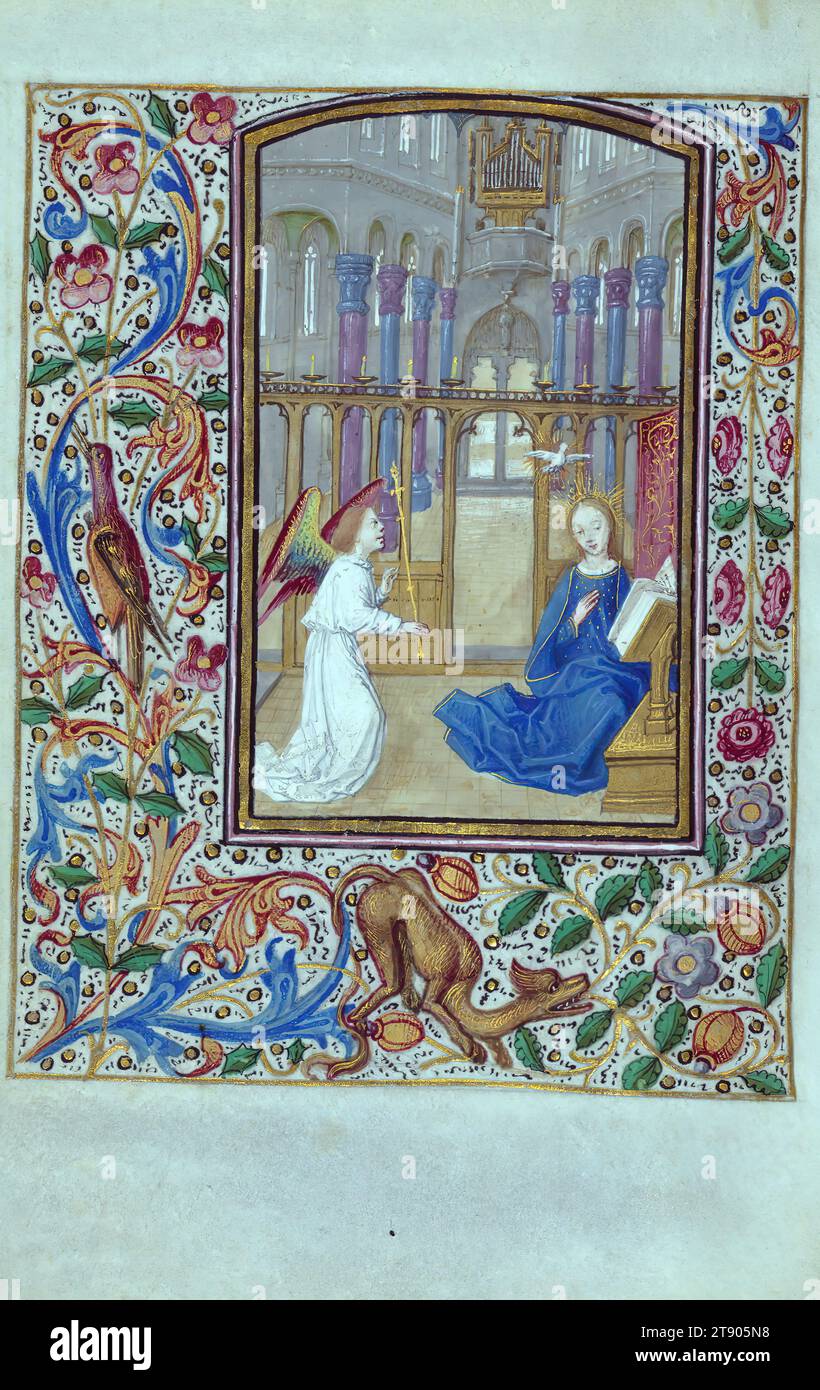 alamy
alamy
Image ID: 2T905N8
www.alamy.com